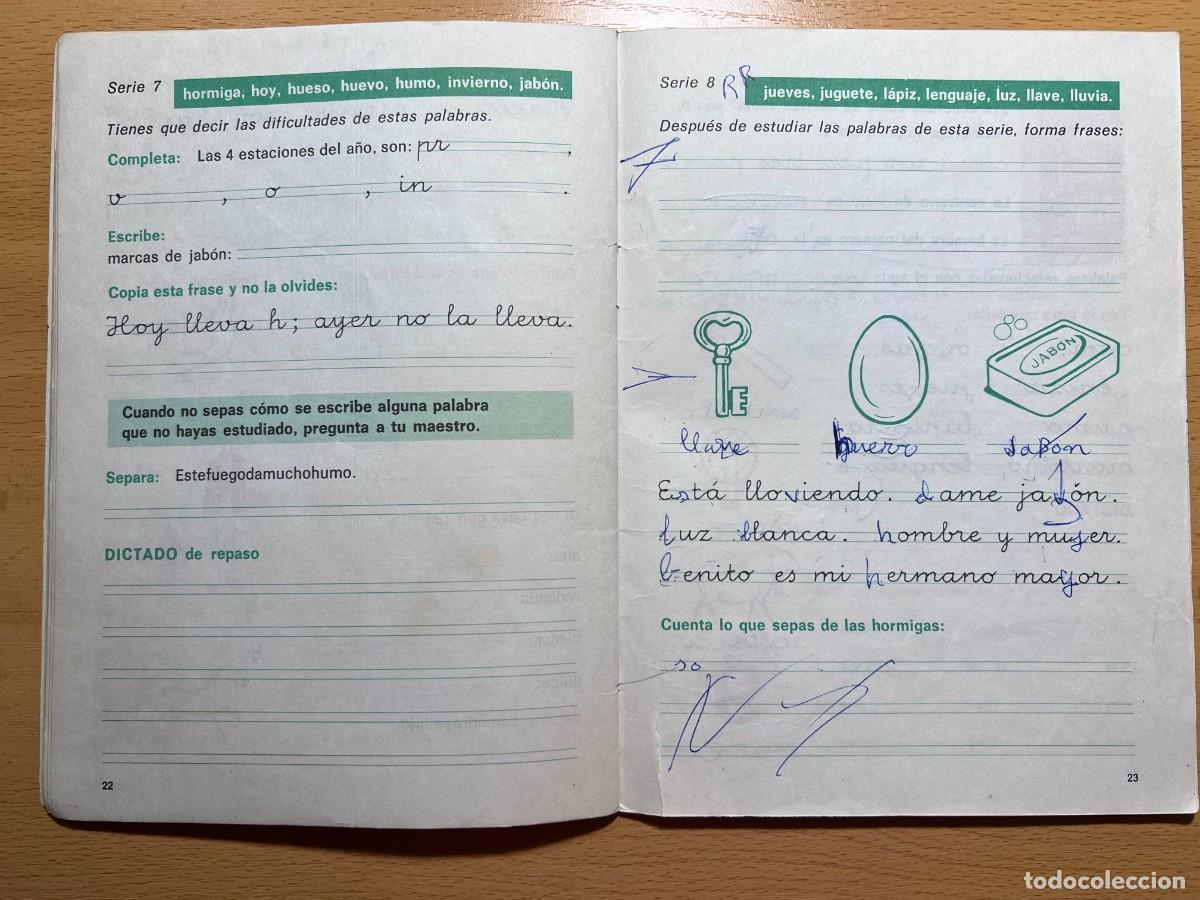 Serie 7 hormiga, hoy, hueso, huevo, humo, invierno, jabón.
Tienes que decir las dificultades de estas palabras.
Completa: Las 4 estaciones del año, son: pr ,
v , o , in .
Escribe:
marcas de jabón:
Copia esta frase y no la olvides:
Hoy lleva h; ayer no la lleva.
Cuando no sepas cómo se escribe alguna palabra
que no hayas estudiado, pregunta a tu maestro.
Separa: Estefuegodamuchohumo.
DICTADO de repaso
22
Serie 8 RR jueves, juguete, lápiz, lenguaje, luz, llave, lluvia.
Después de estudiar las palabras de esta serie, forma frases:
JABÓN
llave huevo Jabón
Está lloviendo. dame jabón.
luz blanca. hombre y mujer.
benito es mi hermano mayor.
Cuenta lo que sepas de las hormigas:
so
23
todocoleccion